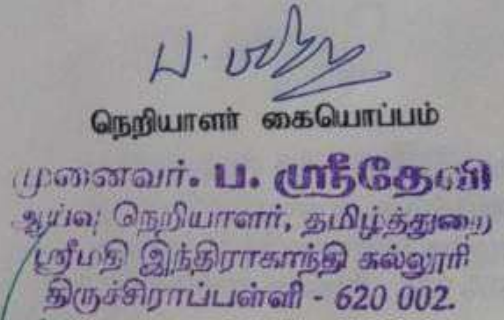 ப.
நெறியாளர் கையொப்பம்
முனைவர். ப. ஸ்ரீதேவி
ஆய்வு நெறியாளர், தமிழ்த்துறை
ஸ்ரீமதி இந்திராகாந்தி கல்லூரி
திருச்சிராப்பள்ளி - 620 002.